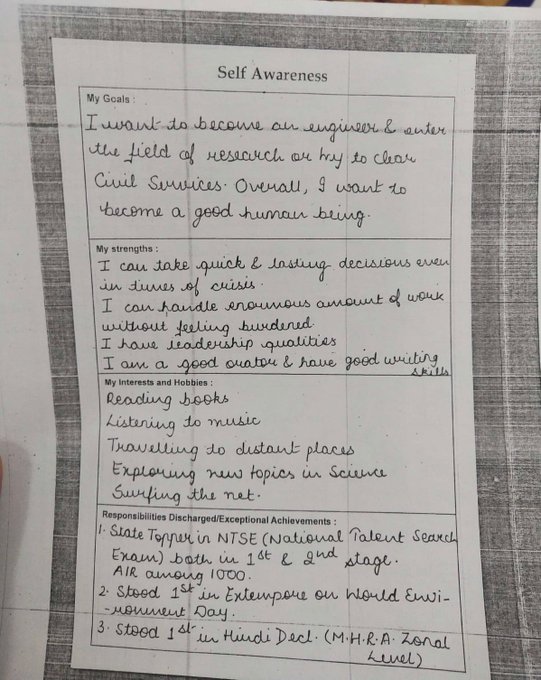 Self Awareness
My Goals :
I want to become an engineer & enter
the field of research or try to clear
Civil Services. Overall, I want to
become a good human being.
My strengths :
I can take quick & lasting decisions even
in times of crisis.
I can handle enormous amount of work
without feeling burdened.
I have leadership qualities
I am a good orator & have good writing
skills
My Interests and Hobbies :
Reading books
Listening to music
Travelling to distant places
Exploring new topics in Science
Surfing the net.
Responsibilities Discharged/Exceptional Achievements :
1. State Topper in NTSE (National Talent Search
Exam) both in 1st & 2nd stage.
AIR among 1000.
2. Stood 1st in Extempore on World Envi-
-ronment Day.
3. Stood 1st in Hindi Decl. (M.H.R.A. Zonal
Level)